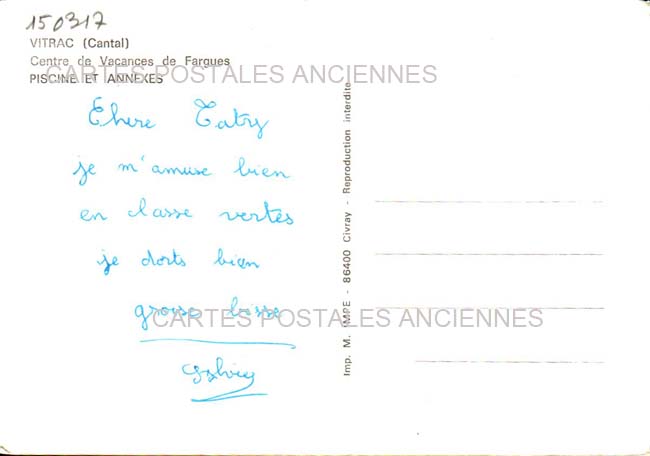 150317
VITRAC (Cantal)
Centre de Vacances de Fargues
PISCINE ET ANNEXES
CARTES POSTALES ANCIENNES
Chere Tatry
je m'amuse bien
en classe vertes
je dorts bien
grosse bisse
CARTES POSTALES ANCIENNES
Sylvie
Imp. M. IMPE - 86400 Civray - Reproduction interdite